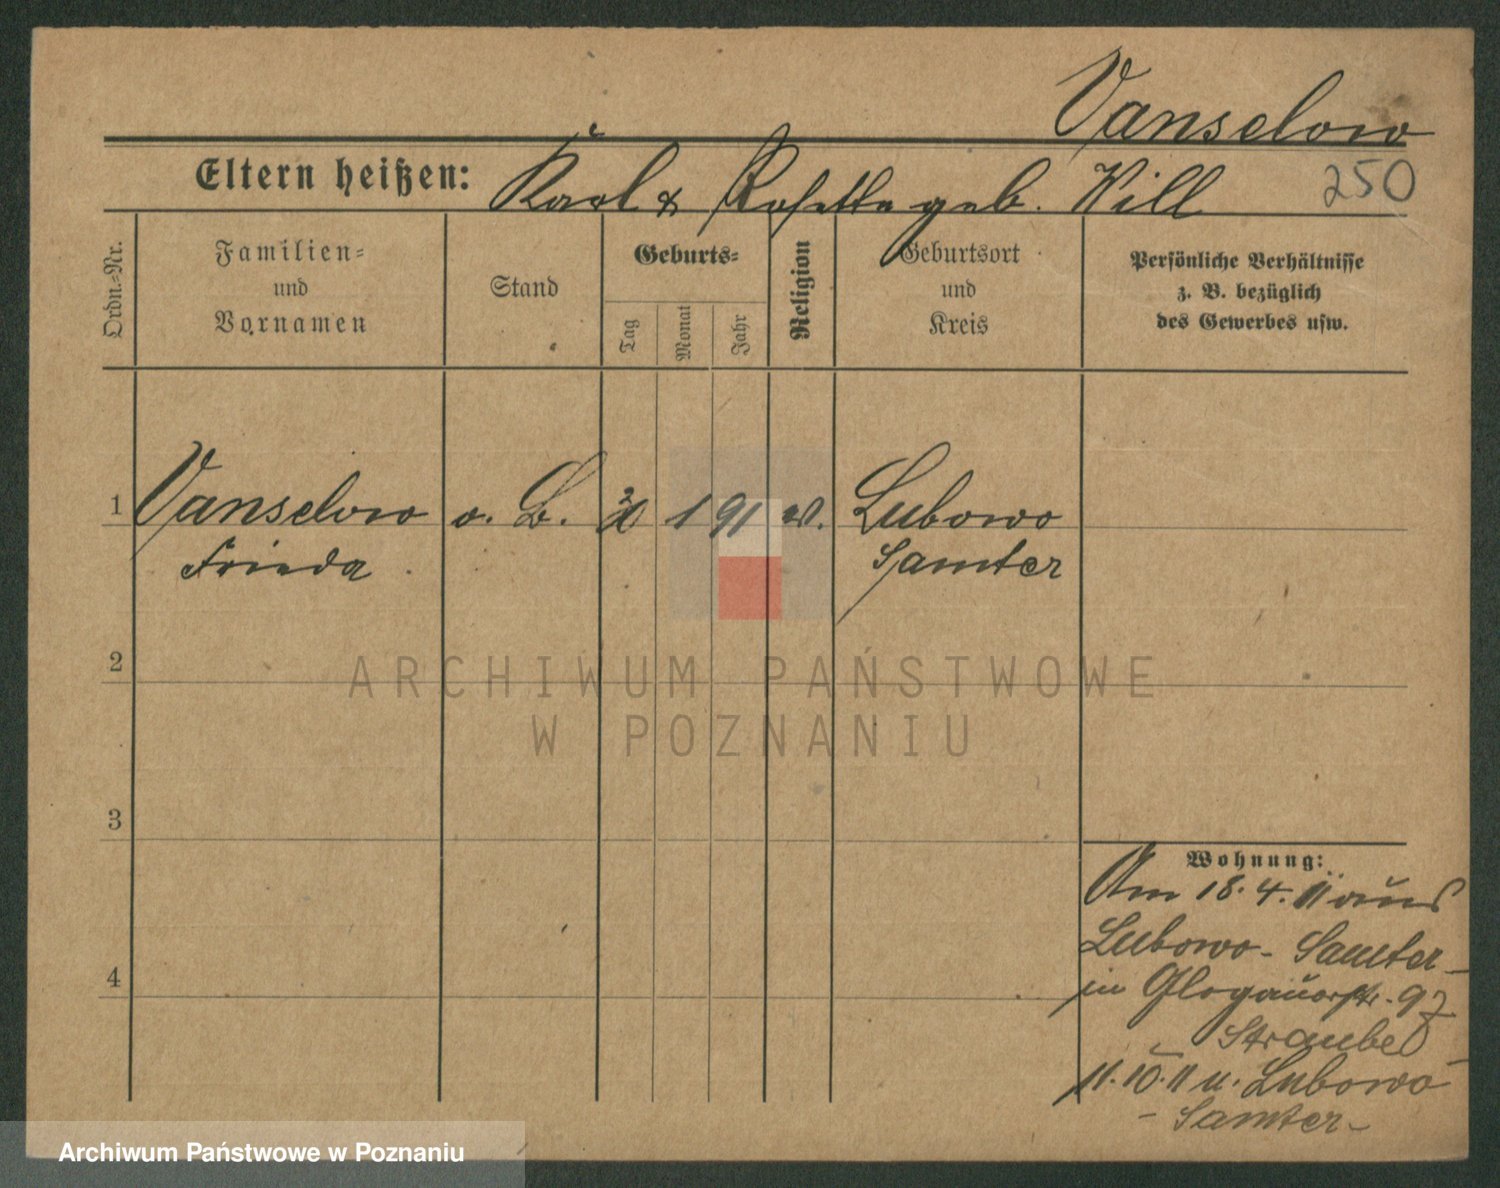 Vanselow
Eltern heißen: Karl & Rosette geb. Will
250
Ordn.-Nr.
Familien-
und
Vornamen
Stand
Geburts-
Tag
Monat
Jahr
Religion
Geburtsort
und
Kreis
Persönliche Verhältnisse
z. B. bezüglich
des Gewerbes usw.
1 Vanselow o. B. 1 91 Lubowo
Frieda Samter
2
ARCHIWUM PAŃSTWOWE
W POZNANIU
3
Wohnung:
Am 18.4.11 aus
Lubowo - Samter -
in Glogauerstr. 97
Straube
11.10.11 n. Lubowo
- Samter -
4
Archiwum Państwowe w Poznaniu